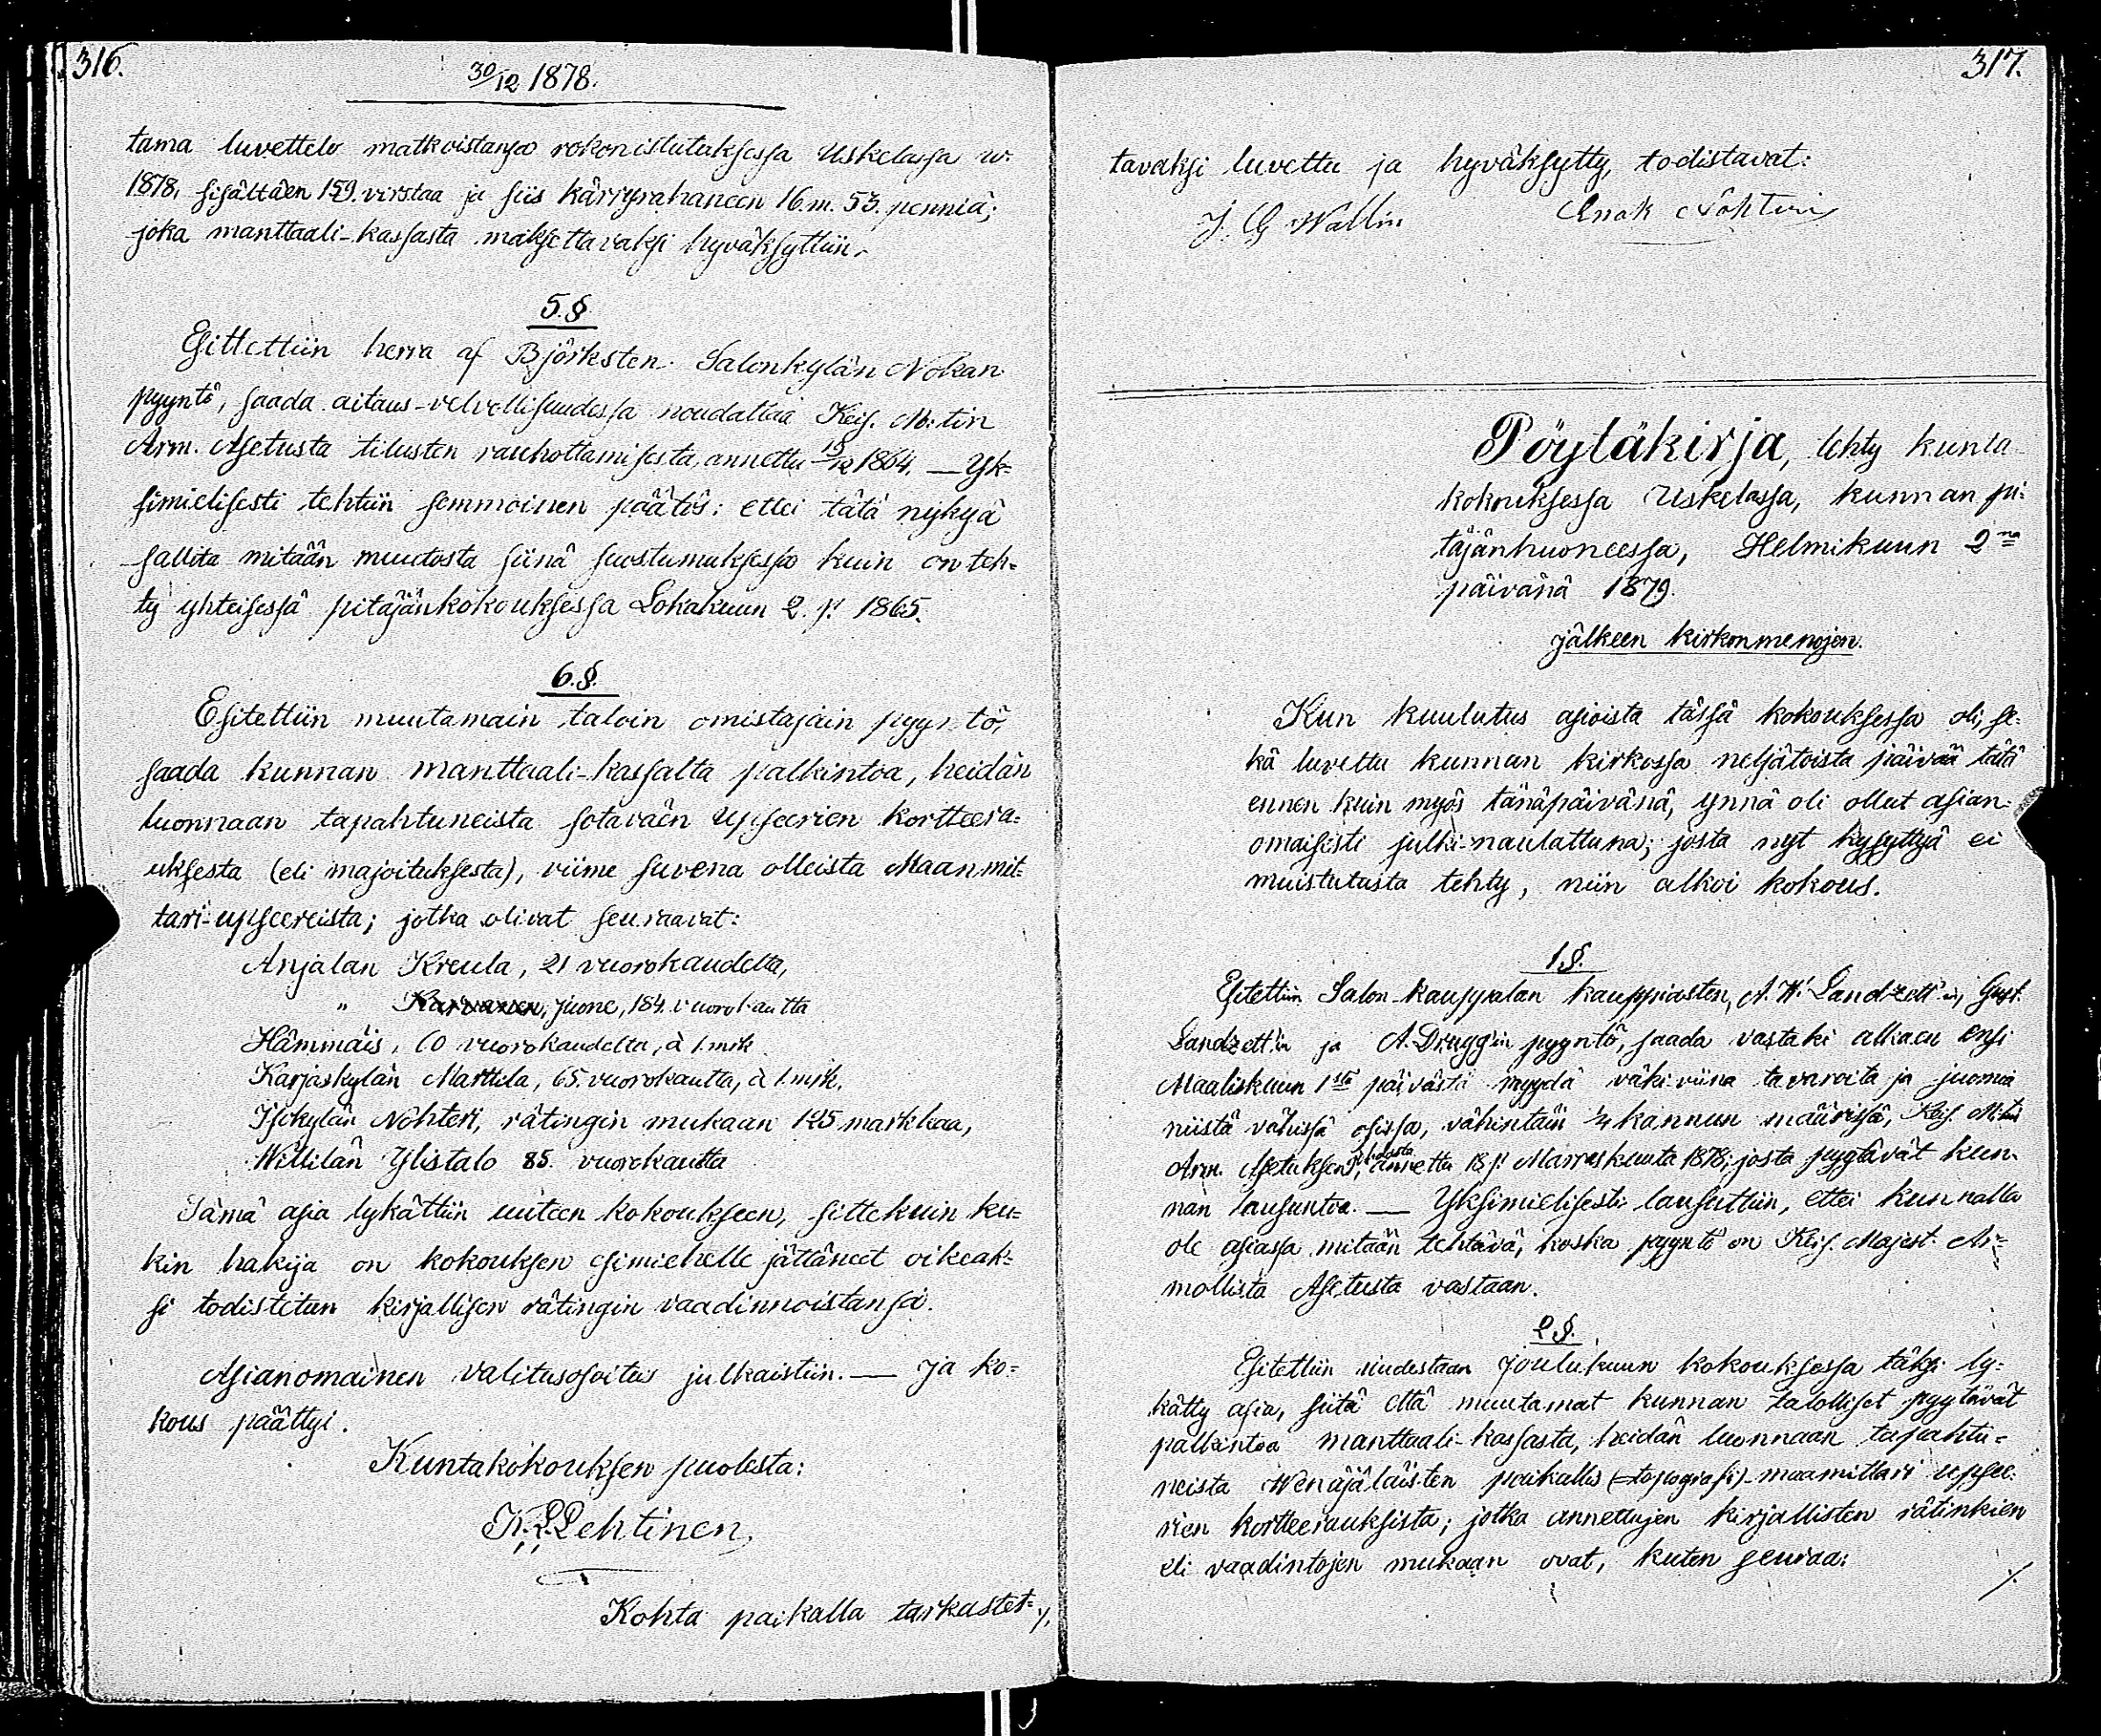 316.
30/12 1878.
tama luvettelo matkoistansa rokonistutuksessa Uskelassa w.
1878, sisältäen 159. virstaa ja siis kärryrahaneen 16. m. 53. penniä;
joka manttaali-kassasta maksettavaksi hyväksyttiin.
5.§.
Esitettiin herra af Björksten Salonkylän Nokan
pyyntö, saada aitaus-velvollisuudessa noudattaa Keis. M:tin
Arm. Asetusta tilusten rauhottamisesta, annettu 19/12 1864. — Yk=
simielisesti tehtiin semmoinen päätös: ettei tätä nykyä
sallita mitään muutosta siinä suostumuksessa kuin on teh=
ty yhteisessä pitäjänkokouksessa Lokakuun 2. p. 1865.
6.§.
Esitettiin muutamain taloin omistajain pyyntö,
saada kunnan manttaali-kassalta palkintoa, heidän
luonnaan tapahtuneista sotaväen upseerien kortteera=
uksesta (eli majoituksesta), viime suvena olleista Maanmit=
tari-upseereista; jotka olivat seuraavat:
Anjalan Kreula, 21 vuorokaudelta,
" Karvanen, Juone, 184. vuorokautta
Hämmäis, 60 vuorokaudelta, à 1. mrk
Karjaskylän Marttila, 65. vuorokautta, à 1. mrk.
Isokylän Nöhteri, rätingin mukaan 125 markkaa,
Willilän Ylistalo 85. vuorokautta
Tämä asia lykättiin uuteen kokoukseen, sittekuin ku=
kin hakija on kokouksen esimiehelle jättäneet oikeak=
si todistetun kirjallisen rätingin vaadinnoistansa.
Asianomainen valitusosoitus julkaistiin. — Ja ko=
kous päättyi.
Kuntakokouksen puolesta:
K. L. Lehtinen,
Kohta paikalla tarkastet= /.
317.
tavaksi luvettu ja hyväksytty, todistavat:
J. G Wallin Enok Nöhteri
Pöytäkirja, tehty kunta
kokouksessa Uskelassa, kunnan pi=
täjänhuoneessa, Helmikuun 2na
päivänä 1879.
jälkeen kirkonmenojen.
Kun kuulutus asioista tässä kokouksessa oli, se=
kä luvettu kunnan kirkossa neljätoista päivää tätä
ennen kuin myös tänäpäivänä, ynnä oli ollut asian=
omaisesti julki-naulattuna; josta nyt kysyttyä ei
muistutusta tehty, niin alkoi kokous.
1.§.
Esitettiin Salon-kauppalan kauppiasten, A. W. Landzett'in, Gust.
Landzett'in ja A. Drugg'in pyyntö, saada vastaki alkaen ensi
Maaliskuun 1stä päivästä myydä väkiviina tavaroita ja juomia
niistä vähissä osissa, vähintäin 1/4 kannun määrissä, Keis. M:tin
Arm. Asetuksen johdosta, annettu 13 p. Marraskuuta 1878; josta pyytävät kun=
nan lausuntoa. — Yksimielisesti lausuttiin, ettei kunnalla
ole asiassa mitään tehtävä, koska pyyntö on Keis. Majest. Ar=
mollista Asetusta vastaan.
2.§.
Esitettiin uudestaan Joulukuun kokouksessa täksi ly=
kätty asia, siitä että muutamat kunnan talolliset pyytävät
palkintoa manttaali-kassasta, heidän luonnaan tapahtu=
neista Wenäjäläisten paikallis (topografi)-maamittari upsee=
rien kortteerauksista; jotka annettujen kirjallisten rätinkien
eli vaadintojen mukaan ovat, kuten seuraa:
/.